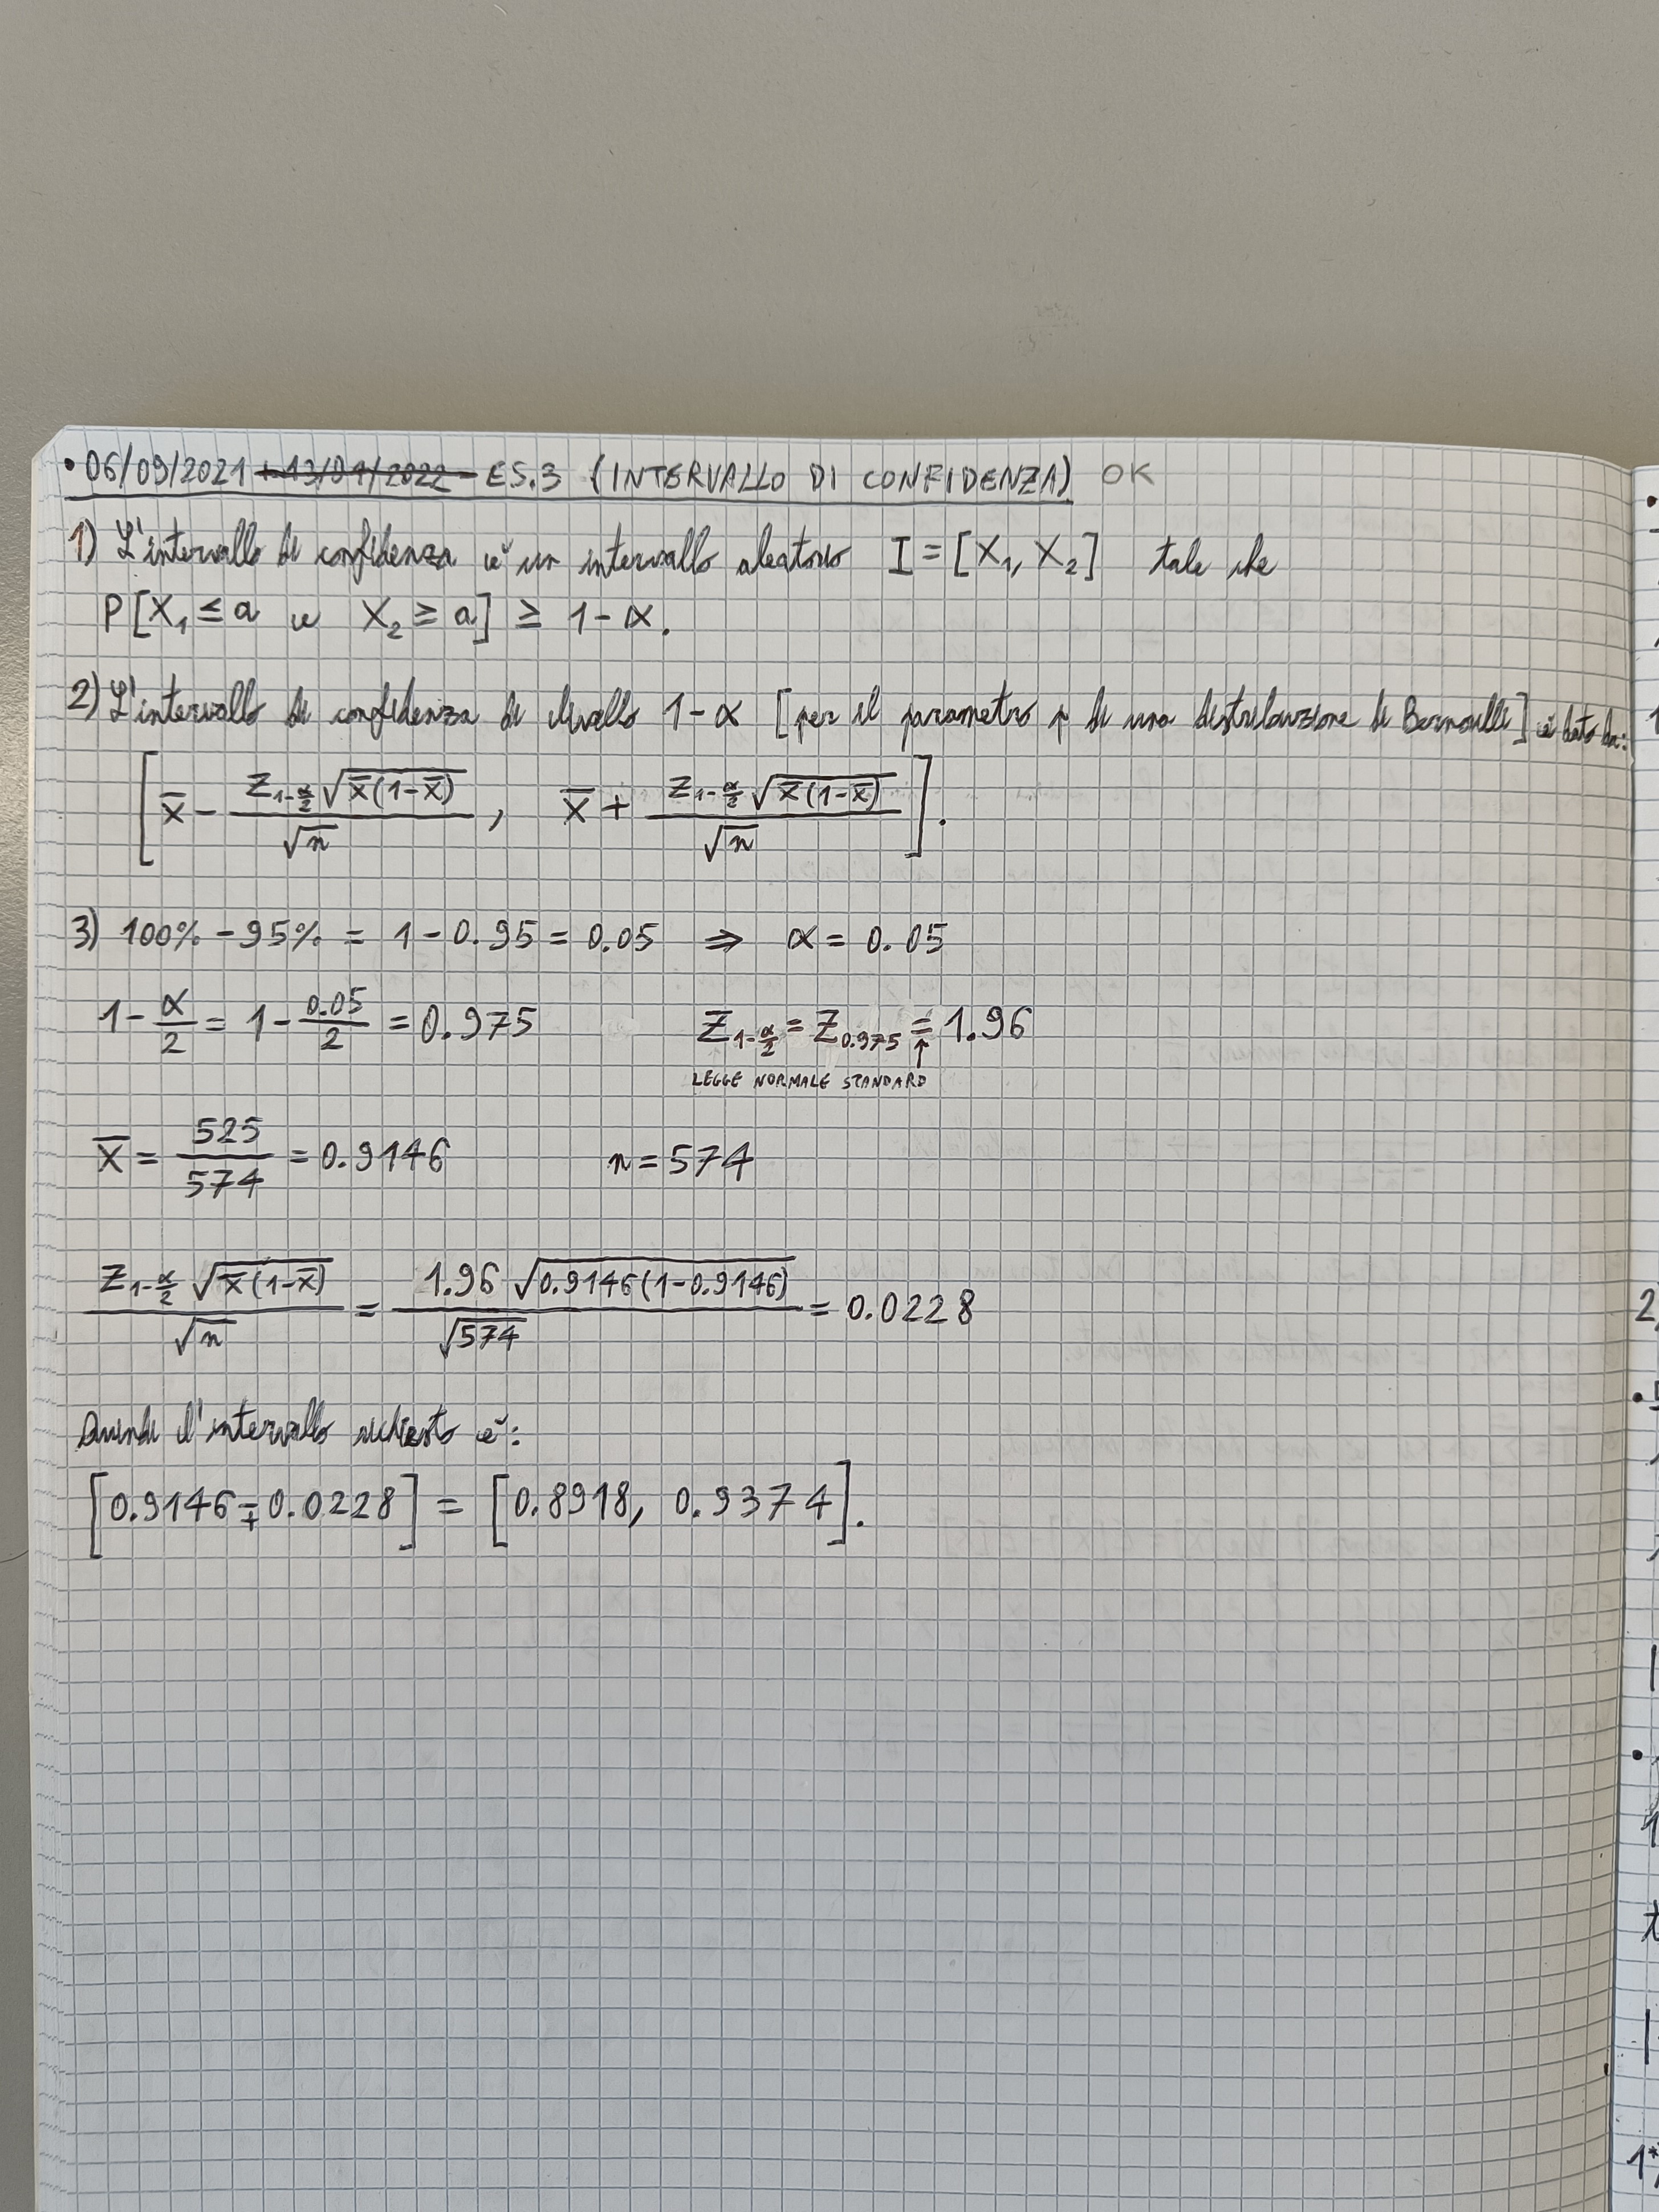 • 06/09/2021 + 13/01/2022 - ES.3 (INTERVALLO DI CONFIDENZA) OK
1) L'intervallo di confidenza è un intervallo aleatorio I = [X₁, X₂] tale che
P[X₁ ≤ a e X₂ ≥ a] ≥ 1-α.
2) L'intervallo di confidenza di livello 1-α [per il parametro p di una distribuzione di Bernoulli] è dato da:
[x̄ - z_{1-α/2} √(x̄(1-x̄)) / √n , x̄ + z_{1-α/2} √(x̄(1-x̄)) / √n].
3) 100% - 95% = 1 - 0.95 = 0.05 ⇒ α = 0.05
1 - α/2 = 1 - 0.05/2 = 0.975 z_{1-α/2} = z_{0.975} = 1.96
↑
LEGGE NORMALE STANDARD
x̄ = 525/574 = 0.9146 n = 574
z_{1-α/2} √(x̄(1-x̄)) / √n = 1.96 √(0.9146(1-0.9146)) / √574 = 0.0228
Quindi l'intervallo richiesto è:
[0.9146 ∓ 0.0228] = [0.8918, 0.9374].